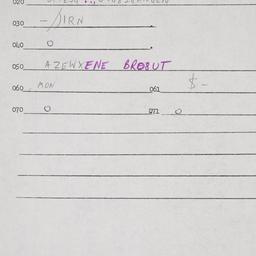 020
030 - JIRN
040 O
050 AZEWXENE BROBUT
060 MON 061 $ -
070 O 071 O